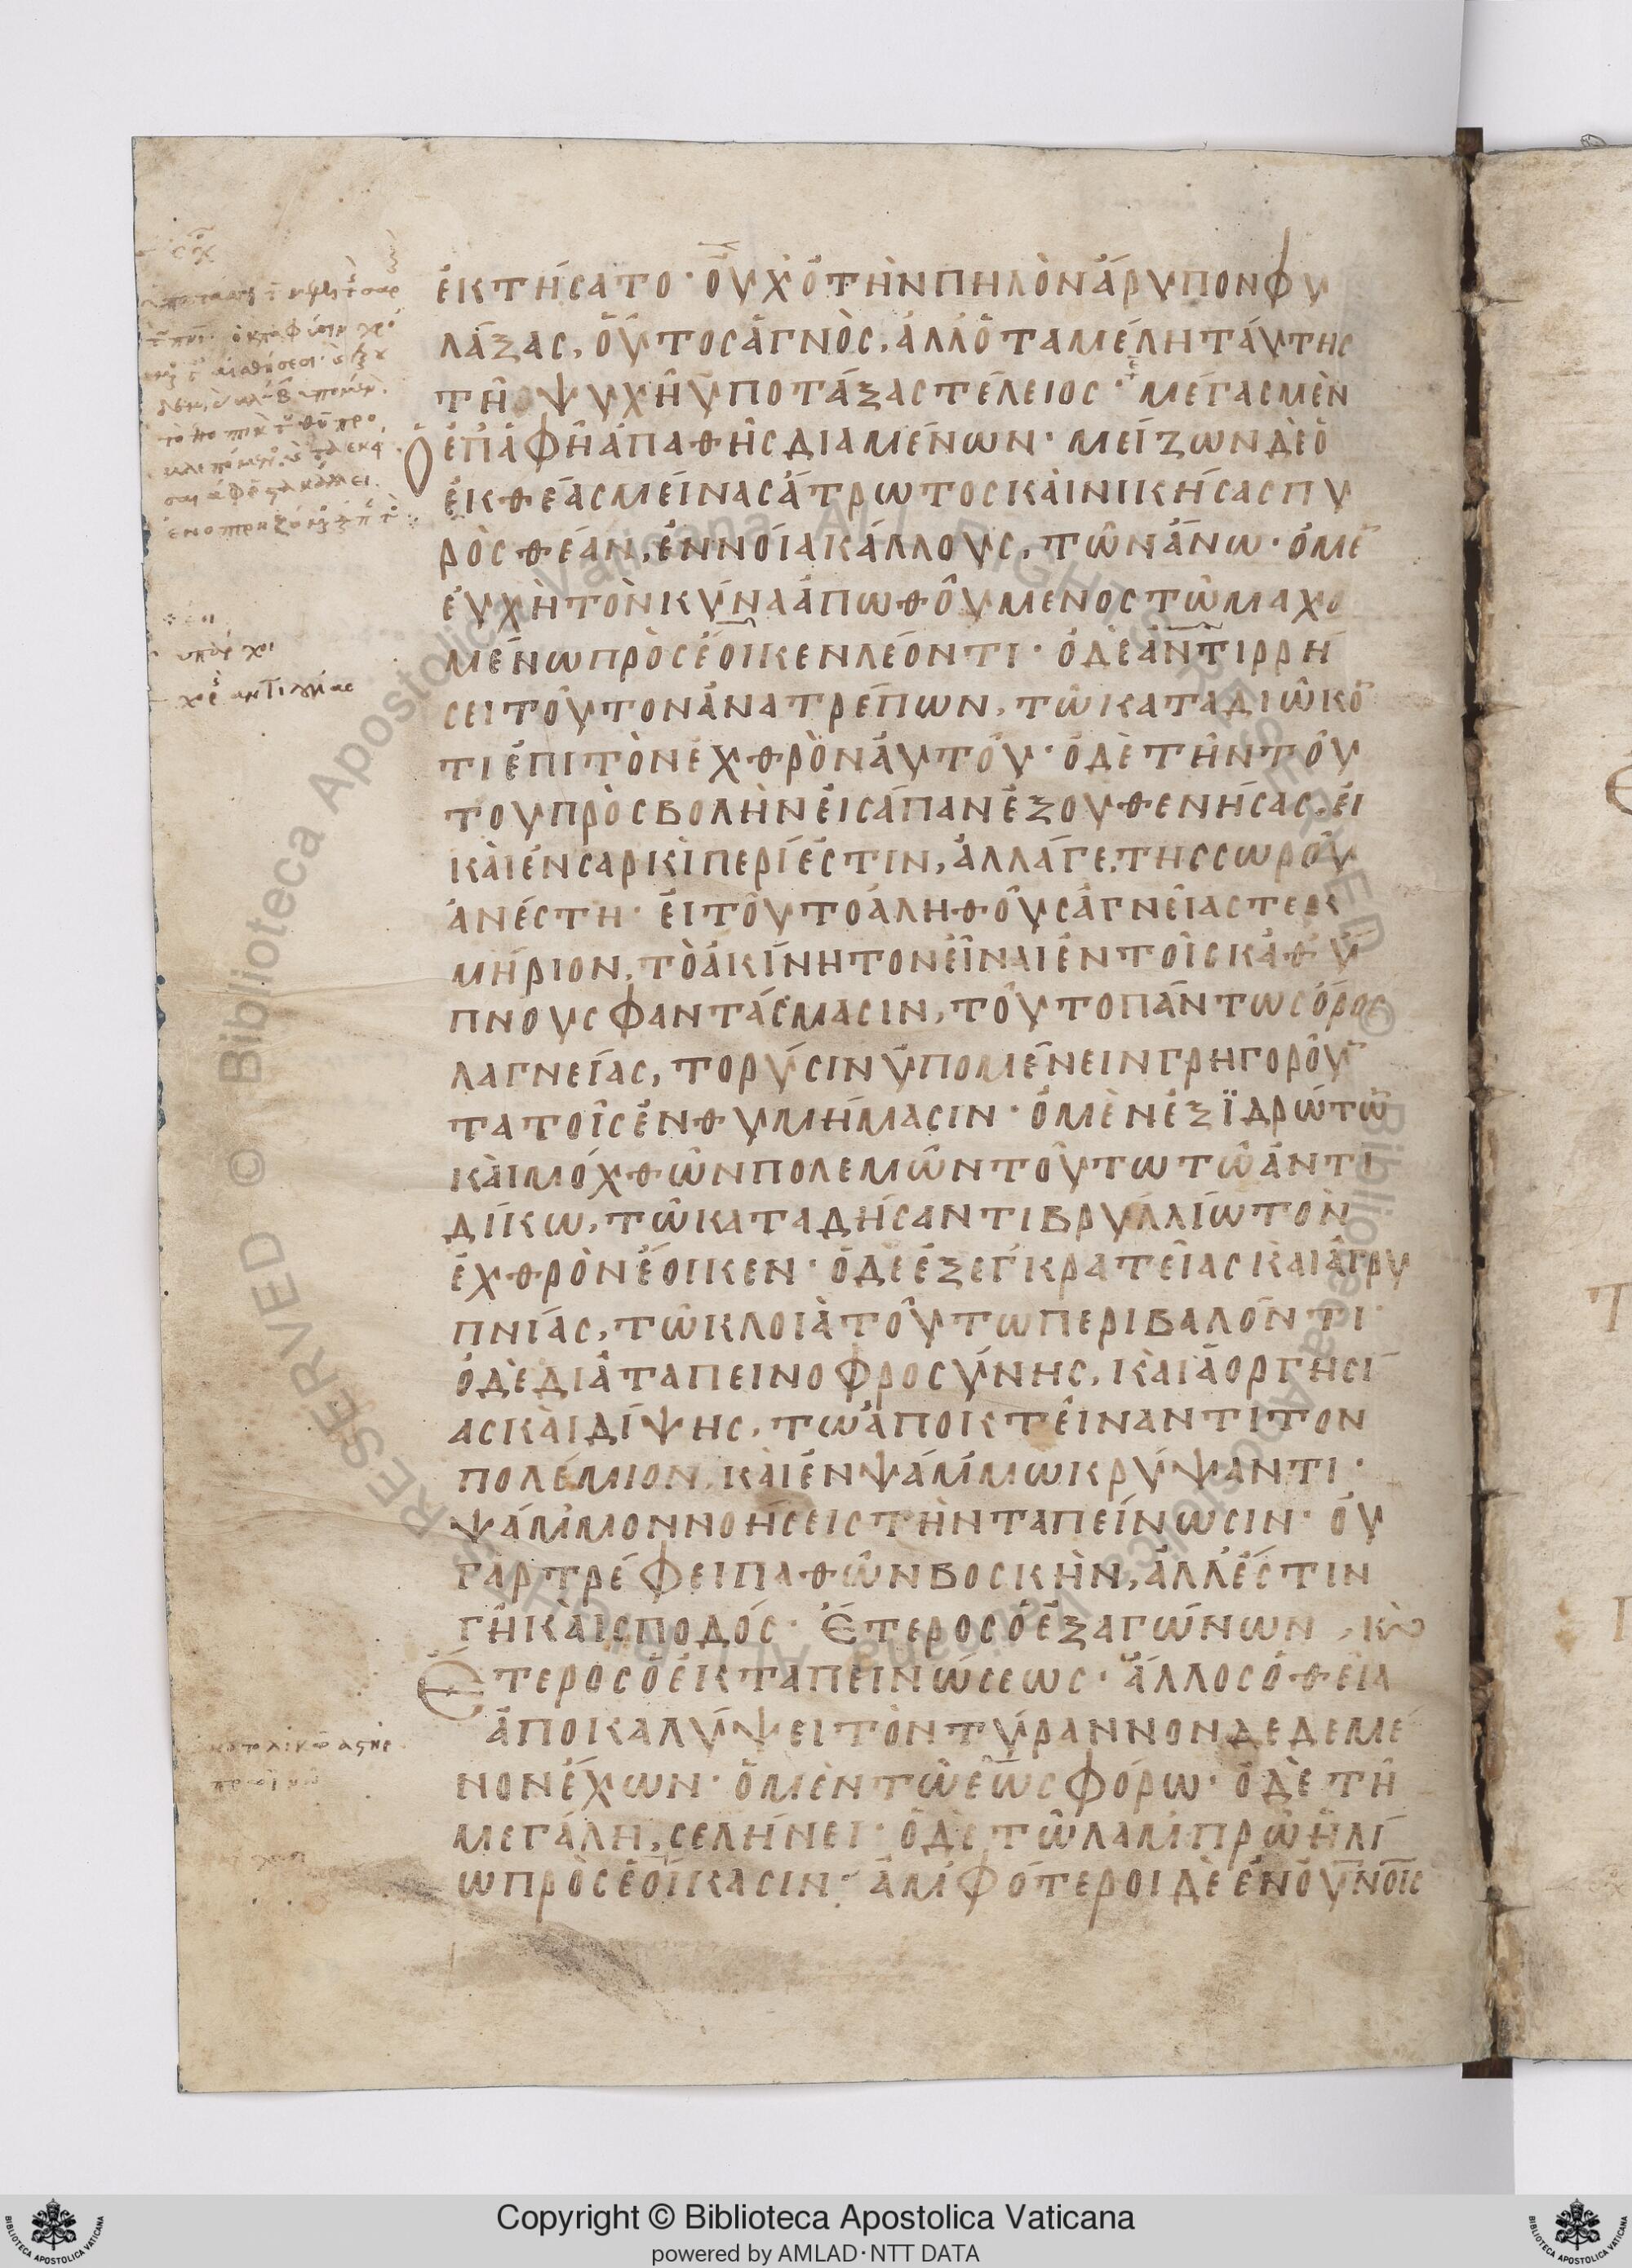 ἐκτήσατο· οὐχ ὁ τὴν πηλὸν ἀρυπον φυ
λάξας, οὗτος ἁγνὸς, ἀλλ ὁ τα μέλη τάυτης
τῇ ψυχῇ ὑποτάξας τέλειος· μέγας μὲν
ὁ ἐπ ἀφῇ ἀπαθὴς διαμένων· μείζων δὲ ὁ
ἐκ θέας μείνας ἄτρωτος καὶ νικήσας πυ
ρὸς θέαν, ἐννοία κάλλους, τῶν ἄνω· ὁ μὲ
ἐυχῇ τὸν κύνα ἀπωθούμενος τῶ μαχο
μένω προσέοικεν λέοντι· ὁ δὲ ἀντιρρή
σει τοῦτον ἀνατρέπων, τῶ καταδιώκο
τι ἐπι τὸν ἐχθρὸν ἀυτοῦ· ὁ δὲ τὴν τού
του πρὸςβολὴν ἐισάπαν ἐξουθενήσας, ἐι
καὶ ἐν σαρκὶ περίεστιν, ἀλλάγε της σωροῦ
ἀνέστη· ἐι τοῦτο ἀληθοῦς ἁγνείας τεκ
μήριον, τὸ ἀκίνητον εἶναι ἐν τοῖς καθ ὕ
πνους φαντάσμασιν, τοῦτο πάντως ὅρος
λαγνείας, το ρύσιν ὑπομένειν γρηγοροῦ
τα τοῖς ἐνθυμήμασιν· ὁ μὲν ἐξ ϊδρώτω
καὶ μόχθων πολεμῶν τούτω τῶ ἀντι
δίκω, τῶ καταδήσαντι βρυλλίω τὸν
ἐχθρὸν ἔοικεν· ὁ δὲ ἐξ εγκρατείας καὶ ἀγρυ
πνίας, τῶ κλοιὰ τούτω περιβαλόντι·
ὁ δὲ διὰ ταπεινοφροσύνης, καὶ ἀοργησί
ας καὶ δίψης, τω ἀποκτείναντι τον
πολέμιον, καὶ ἐν ψάμμω κρύψαντι·
ψάμμον νοήσεις τὴν ταπείνωσιν· οὐ
γὰρ τρέφει παθῶν βοσκὴν, ἀλλ ἐστιν
γῆ καὶ σποδός· ἕτερος ὁ ἐξ αγώνων, κὰι
Ἕτερος ὁ ἐκ ταπεινώσεως· ἄλλος ὁ θεία
ἀποκαλύψει τὸν τύραννον δεδεμέ
νον ἔχων· ὁ μὲν τῶ ἑωςφόρω· ὁ δὲ τῇ
μεγάλη, σελήνει· ὁ δὲ τῶ λαμπρῶ ἡλί
ω πρὸσεοίκασιν· ἀμφότεροι δὲ ἐν οὐνοῖς
Copyright © Biblioteca Apostolica Vaticana
powered by AMLAD·NTT DATA